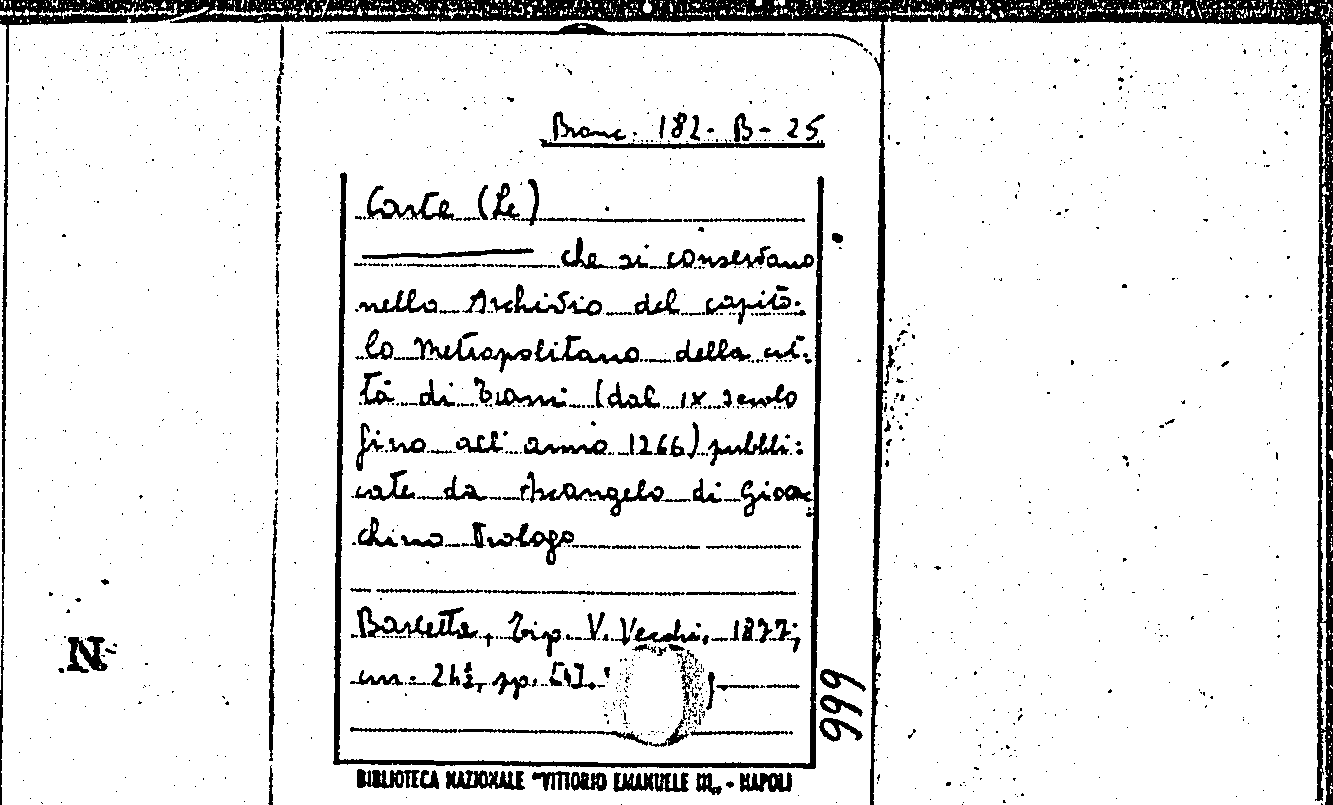 Branc. 182- B- 25
Carte (Le)
che si conservano
nello Archivio del capito-
lo Metropolitano della cit-
tà di Trani (dal IX secolo
fino all'anno 1266) pubbli-
cate da Arcangelo di Gioac
chino Prologo
Barletta, Tip. V. Vecchi, 1877;
cm. 24½, pp. [4].
999
N
BIBLIOTECA NAZIONALE "VITTORIO EMANUELE III„ - NAPOLI